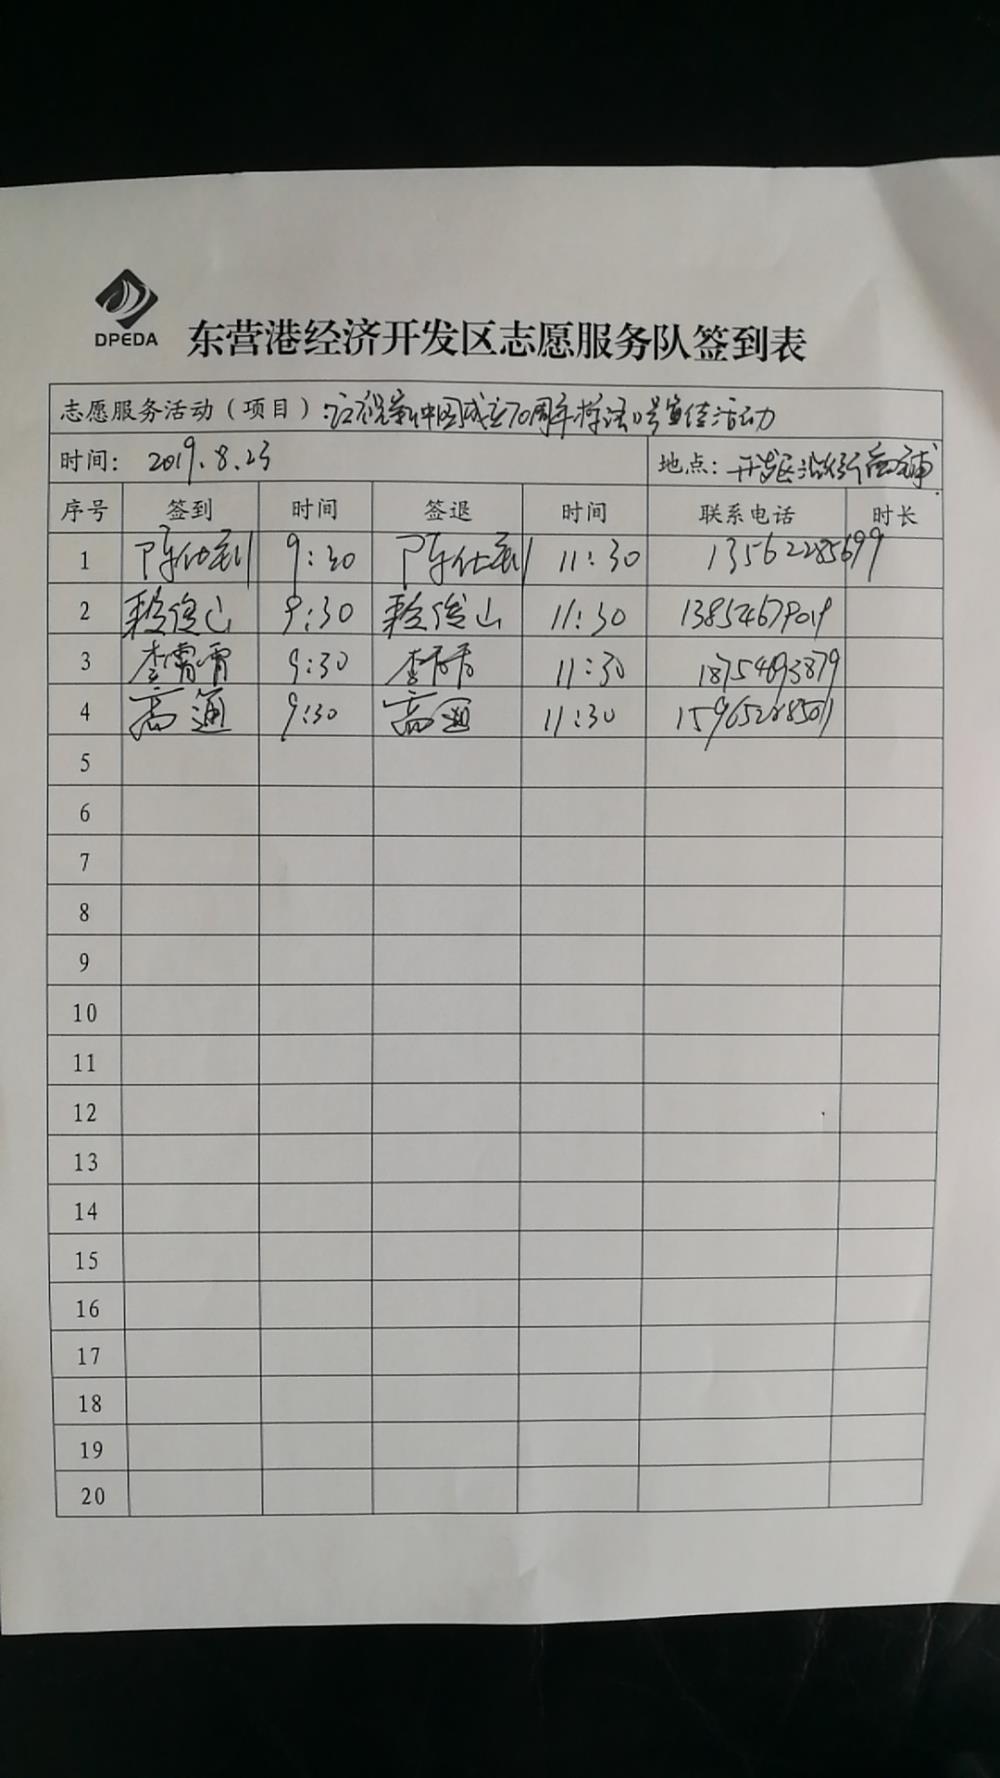 DPEDA
东营港经济开发区志愿服务队签到表
志愿服务活动（项目）：庆祝新中国成立70周年标语口号宣传活动
时间： 2019.8.23 地点：开发区沿街商铺
序号 签到 时间 签退 时间 联系电话 时长
1 陈仕利 9:30 陈仕利 11:30 13562285699
2 赖俊山 9:30 赖俊山 11:30 13854679019
3 李霄霄 9:30 李 11:30 18754693879
4 高通 9:30 高通 11:30
5
6
7
8
9
10
11
12
13
14
15
16
17
18
19
20